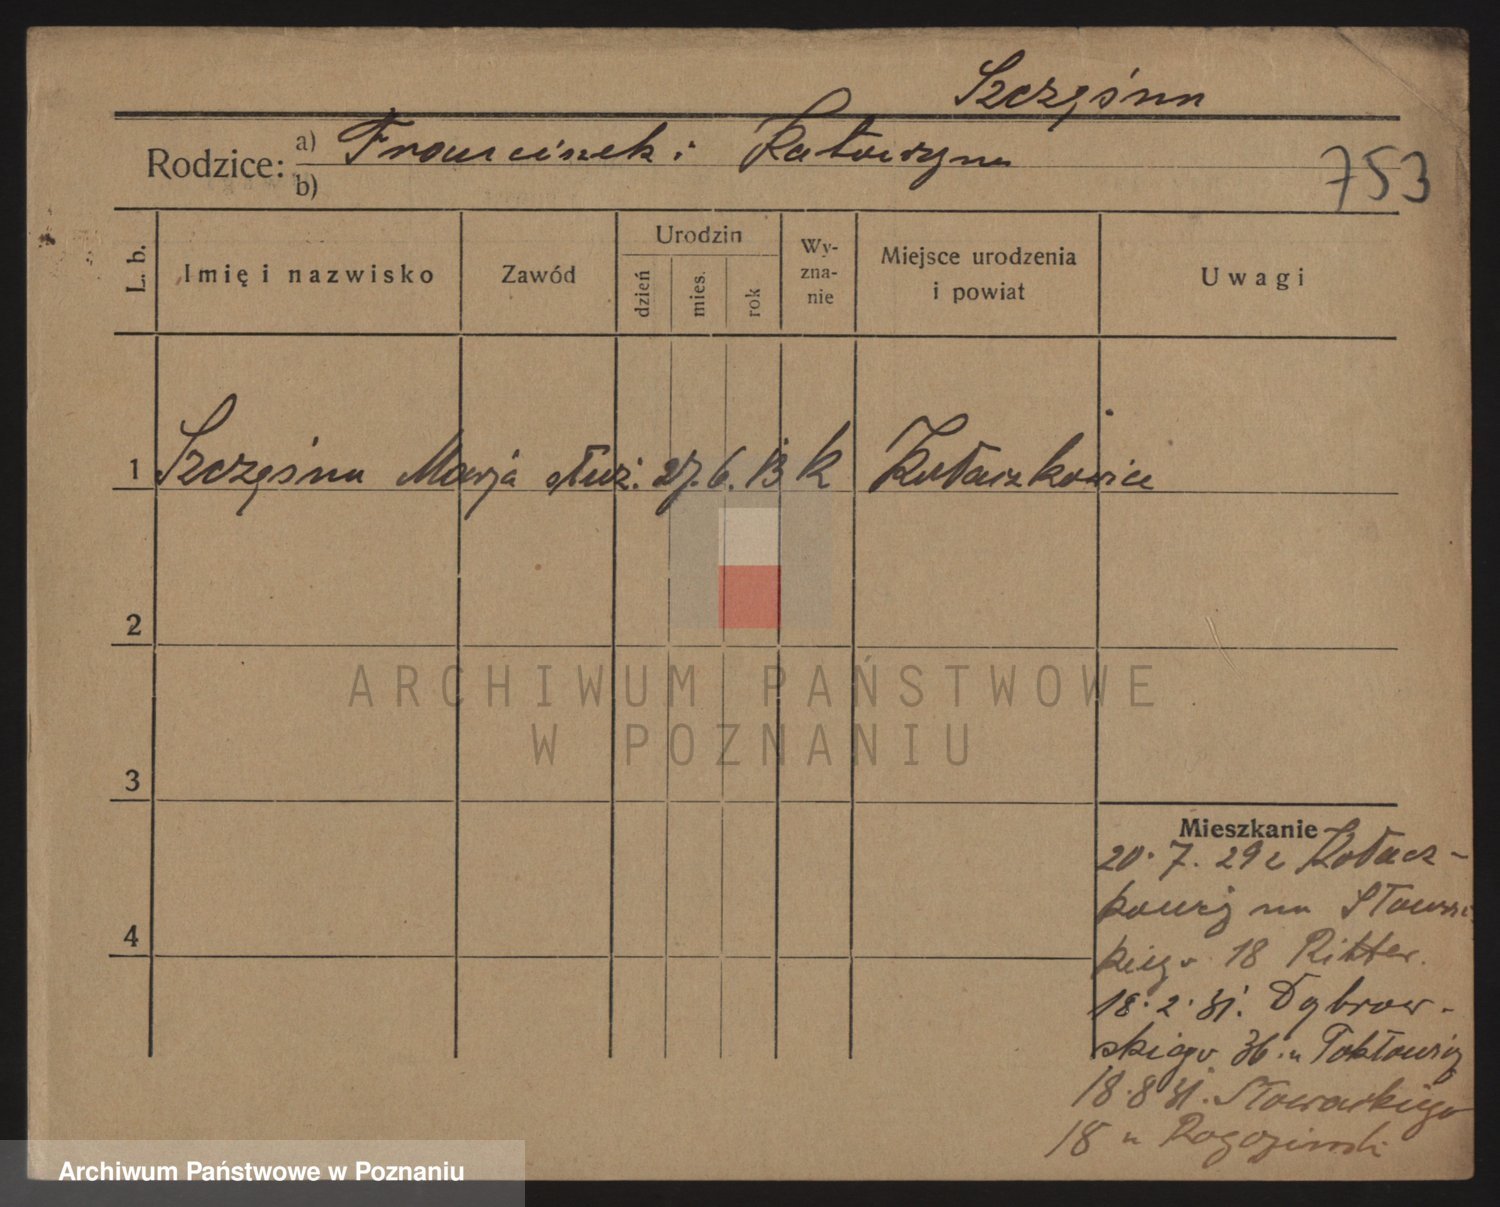 Szczęsna
Rodzice: a) Franciszek i Katarzyna
b)
753
L. b. Imię i nazwisko Zawód Urodzin dzień mies. rok Wy-zna-nie Miejsce urodzenia i powiat Uwagi
1 Szczęsna Marja służ. 27. 6. 13 k Kołaczkowice
2
ARCHIWUM PAŃSTWOWE
W POZNANIU
3
4
Mieszkanie
20. 7. 29 z Kołacz-
na
18 Ritter.
18. 2. 31. Dąbrow-
skiego 36. u
18. 8 31. Słowackiego
18 u
Archiwum Państwowe w Poznaniu